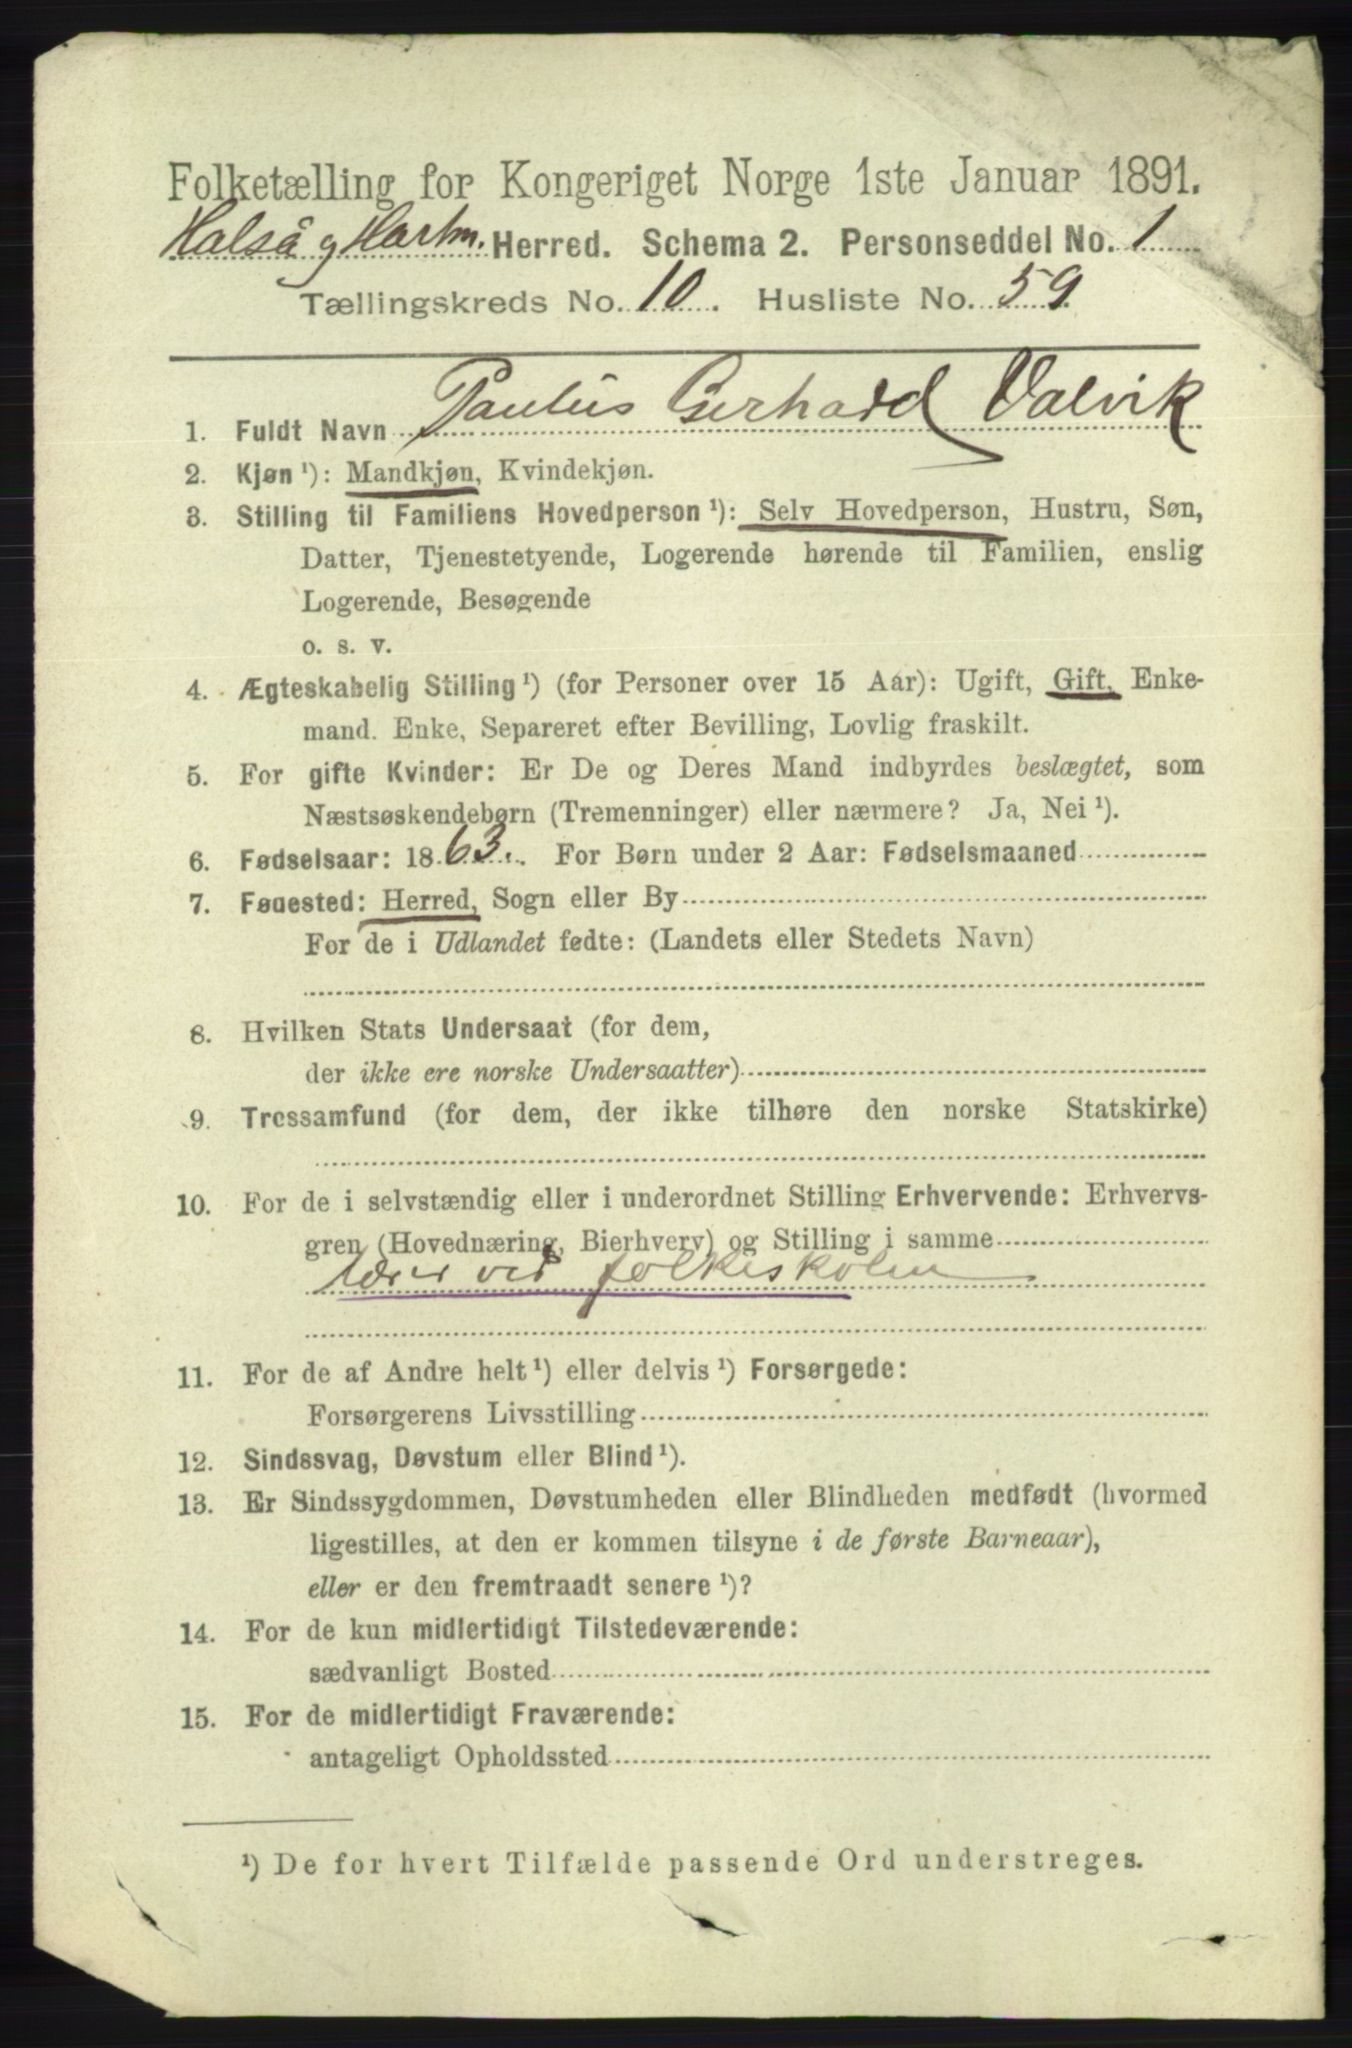 Folketælling for Kongeriget Norge 1ste Januar 1891.
Halså og Hartm. Herred. Schema 2. Personseddel No. 1
Tællingskreds No. 10. Husliste No. 59.
1. Fuldt Navn Paulus Gerhard Valvik
2. Kjøn ¹): Mandkjøn, Kvindekjøn.
3. Stilling til Familiens Hovedperson ¹): Selv Hovedperson, Hustru, Søn,
Datter, Tjenestetyende, Logerende hørende til Familien, enslig
Logerende, Besøgende
o. s. v.
4. Ægteskabelig Stilling ¹) (for Personer over 15 Aar): Ugift, Gift, Enke-
mand. Enke, Separeret efter Bevilling, Lovlig fraskilt.
5. For gifte Kvinder: Er De og Deres Mand indbyrdes beslægtet, som
Næstsøskendebørn (Tremenninger) eller nærmere? Ja, Nei ¹).
6. Fødselsaar: 1863. For Børn under 2 Aar: Fødselsmaaned
7. Føuested: Herred, Sogn eller By
For de i Udlandet fødte: (Landets eller Stedets Navn)
8. Hvilken Stats Undersaat (for dem,
der ikke ere norske Undersaatter)
9. Trossamfund (for dem, der ikke tilhøre den norske Statskirke)
10. For de i selvstændig eller i underordnet Stilling Erhvervende: Erhvervs-
gren (Hovednæring, Bierhverv) og Stilling i samme
lærer ved folkeskolen
11. For de af Andre helt ¹) eller delvis ¹) Forsørgede:
Forsørgerens Livsstilling
12. Sindssvag, Døvstum eller Blind ¹).
13. Er Sindssygdommen, Døvstumheden eller Blindheden medfødt (hvormed
ligestilles, at den er kommen tilsyne i de første Barneaar),
eller er den fremtraadt senere ¹)?
14. For de kun midlertidigt Tilstedeværende:
sædvanligt Bosted
15. For de midlertidigt Fraværende:
antageligt Opholdssted
¹) De for hvert Tilfælde passende Ord understreges.